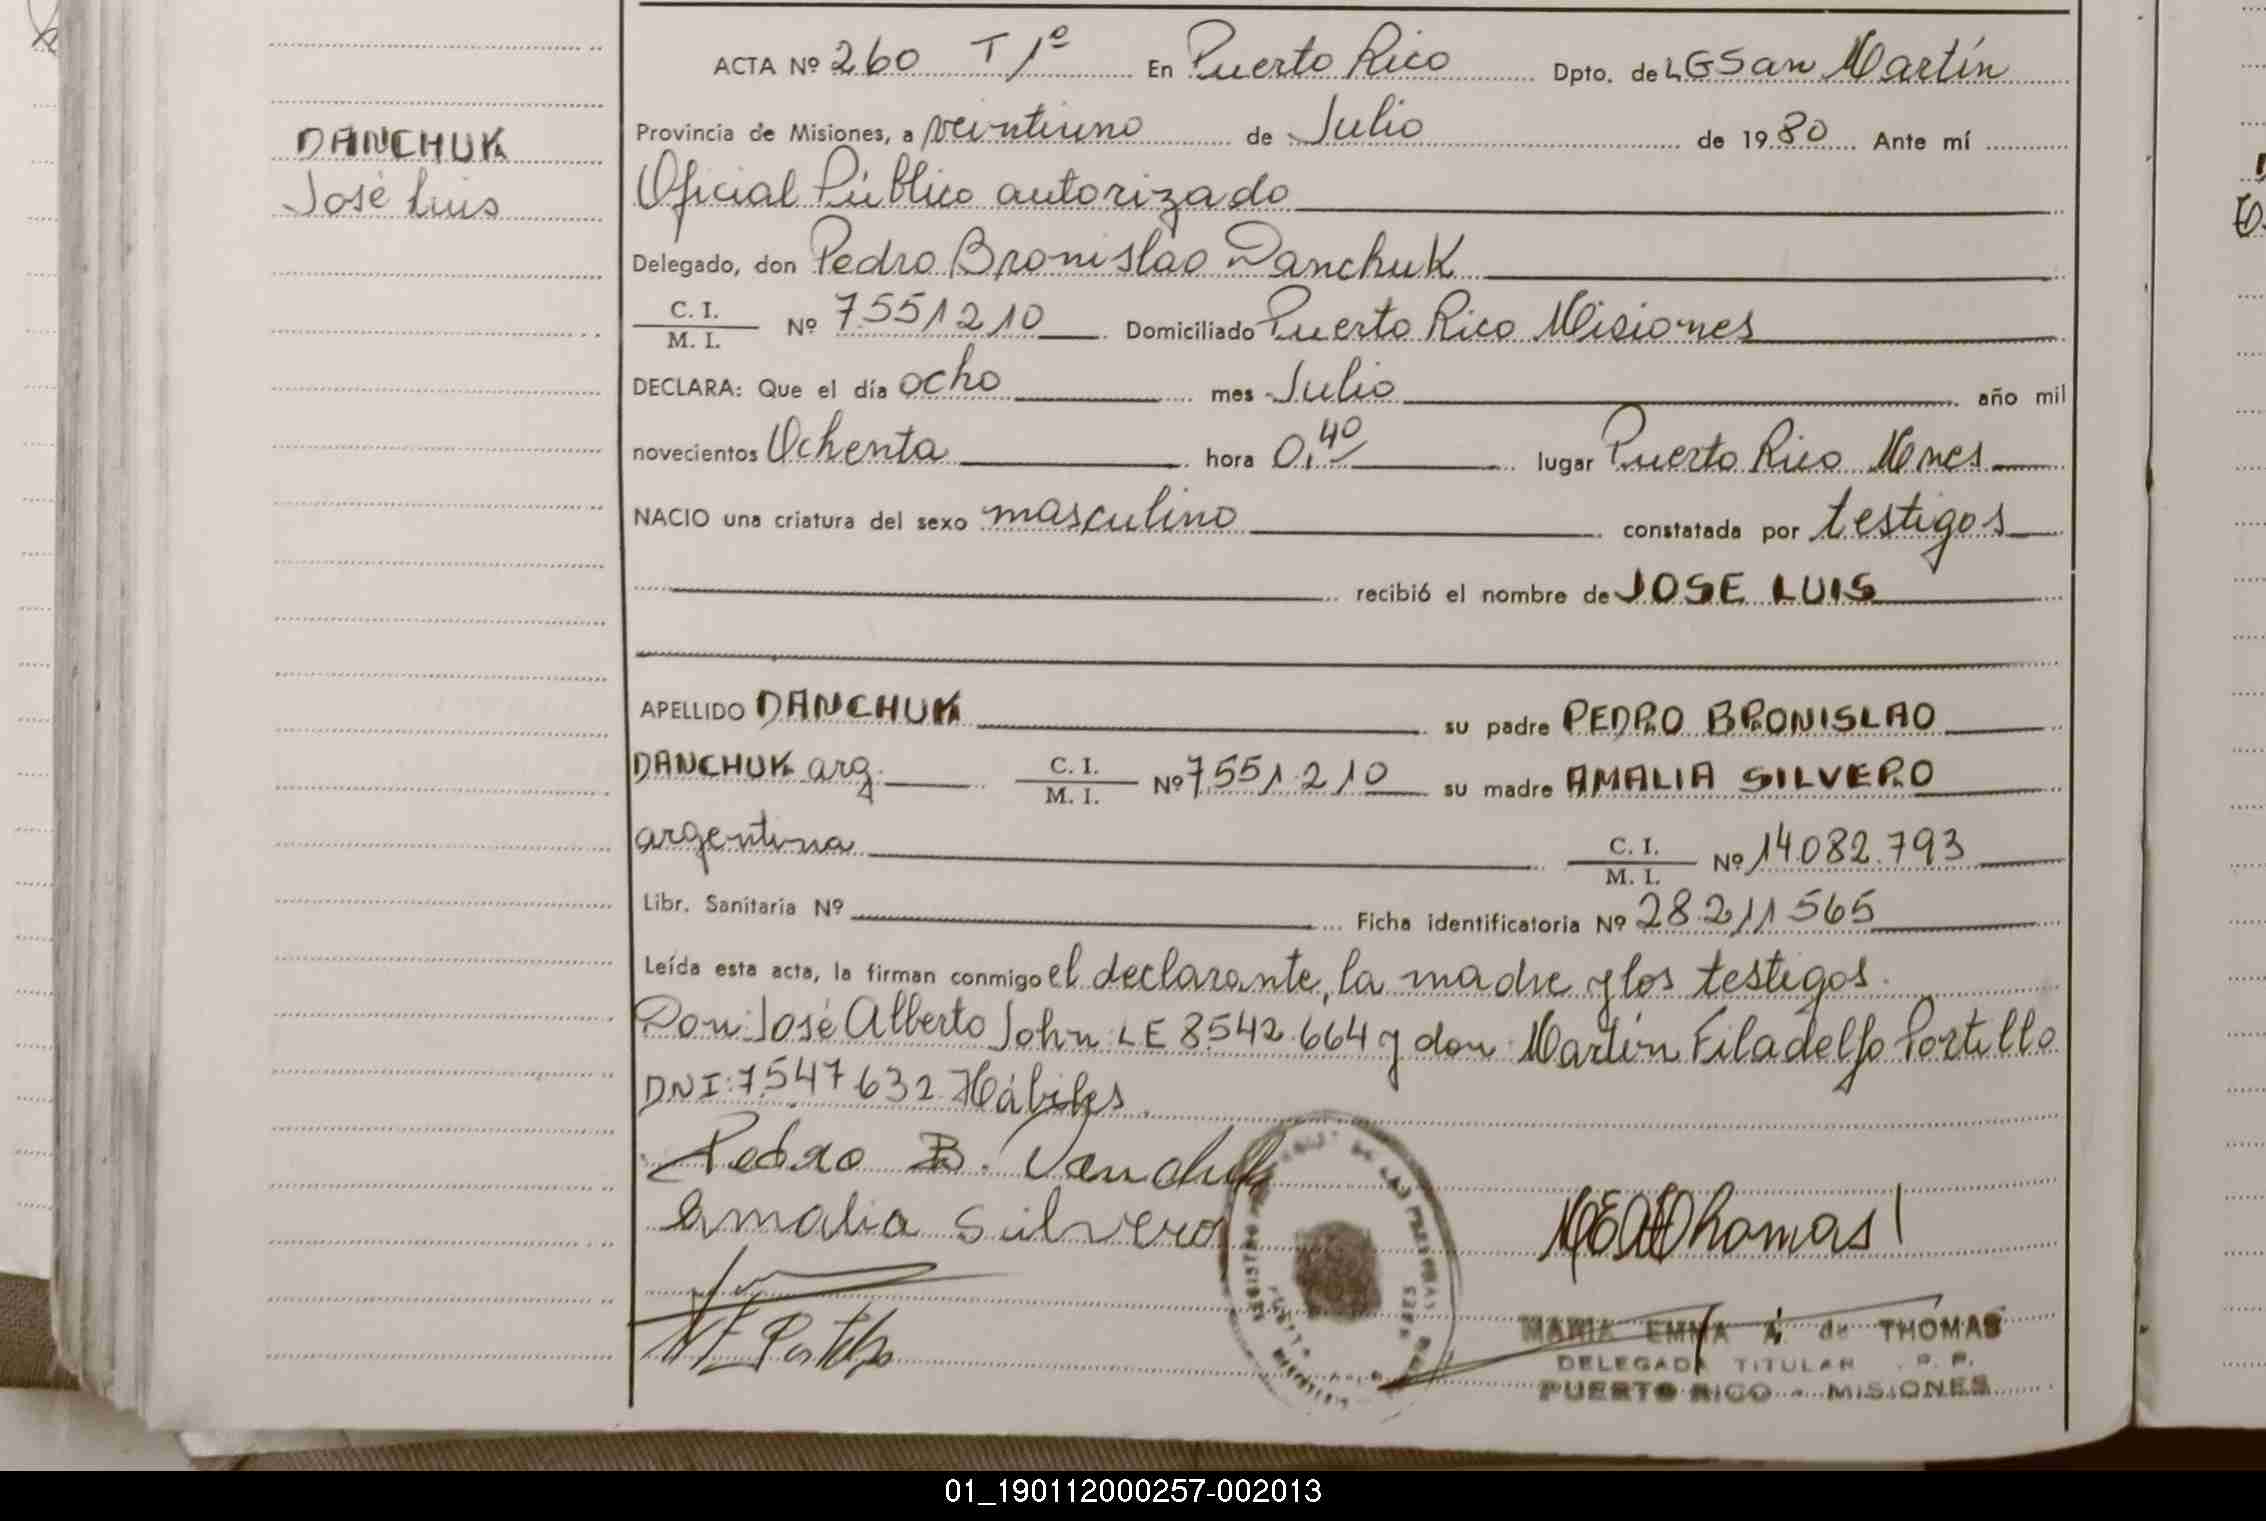 ACTA Nº 260 T 1º En Puerto Rico Dpto. de LGSan Martín
DANCHUK
José Luis
Provincia de Misiones, a veintiuno de Julio de 1980 Ante mí
Oficial Público autorizado
Delegado, don Pedro Bronislao Danchuk
C. I.
M. I. Nº 7551210 Domiciliado Puerto Rico Misiones
DECLARA: Que el día ocho mes Julio año mil
novecientos Ochenta hora 0,40 lugar Puerto Rico Mnes
NACIO una criatura del sexo masculino constatada por testigos
recibió el nombre de JOSE LUIS
APELLIDO DANCHUK su padre PEDRO BRONISLAO
DANCHUK arg. C. I. M. I. Nº 7551.210 su madre AMALIA SILVERO
argentina C. I. M. I. Nº 14.082.793
Libr. Sanitaria Nº Ficha identificatoria Nº 28.211565
Leída esta acta, la firman conmigo el declarante, la madre y los testigos.
Don: José Alberto John LE 8542.664 y don Martín Filadelfo Portillo
DNI: 7.547.632 Hábiles.
Pedro B. Danchuk
Amalia Silvero
MARIA EMMA A. de THOMAS
DELEGADA TITULAR R. P.
PUERTO RICO - MISIONES
01_190112000257-002013